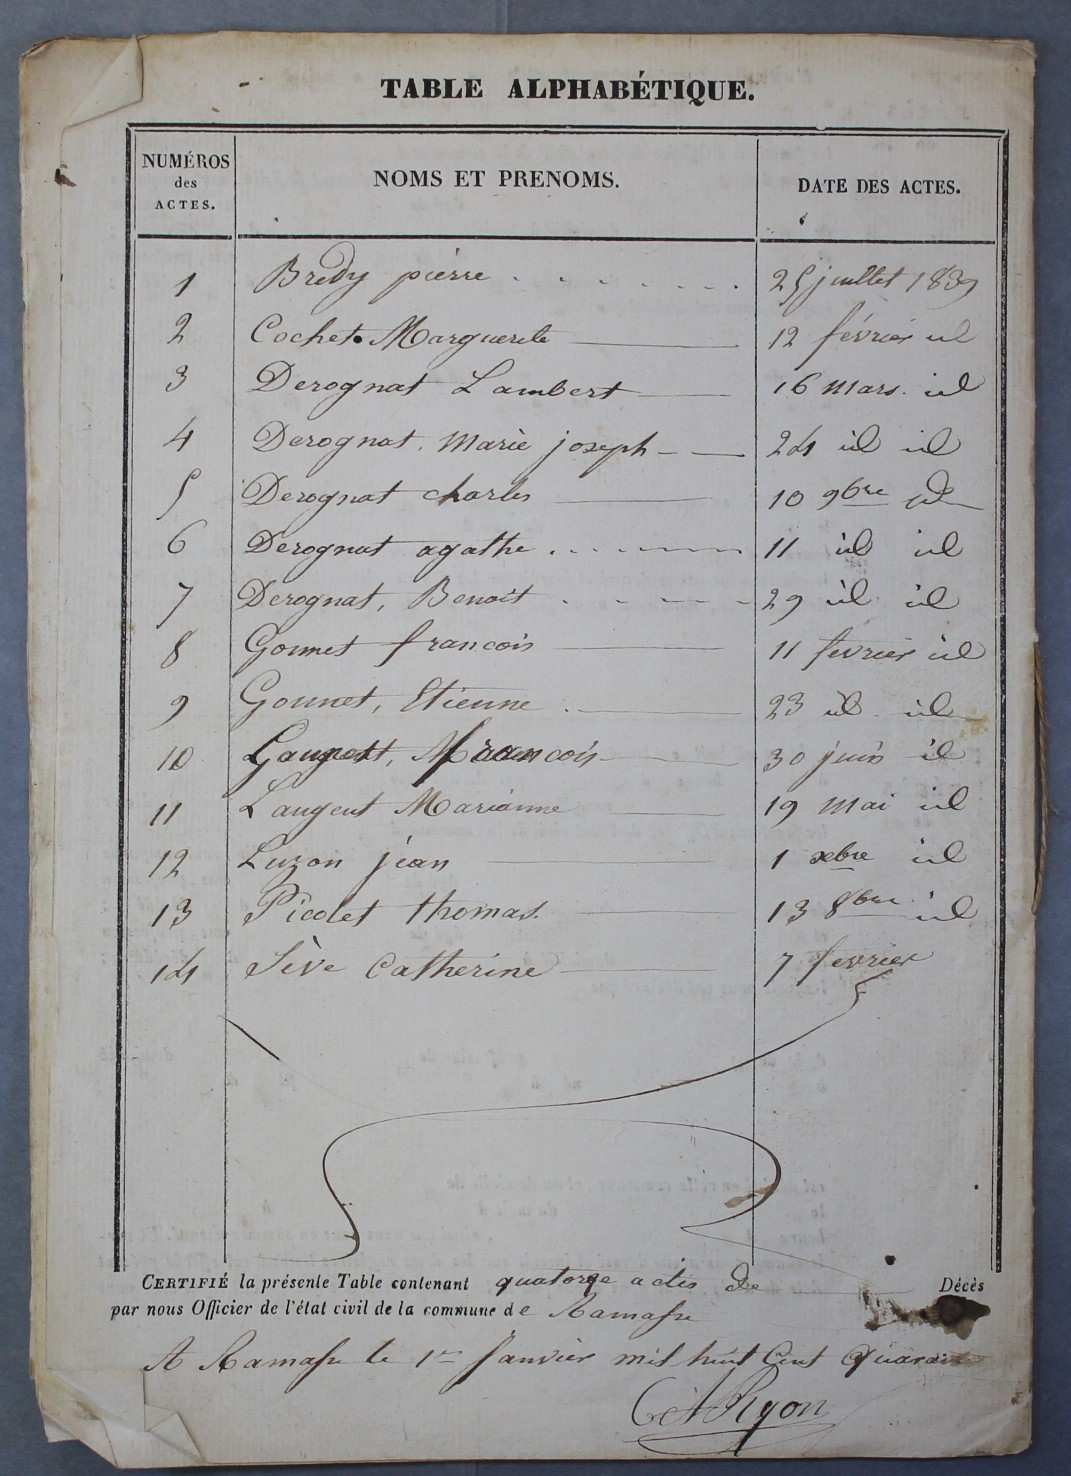 TABLE ALPHABÉTIQUE.
NUMÉROS des ACTES. NOMS ET PRENOMS. DATE DES ACTES.
1 Bredy pierre 25 juillet 1839
2 Cochet Marguerite 12 février id
3 Derognat Lambert 16 mars id
4 Derognat Marie joseph 24 id id
5 Derognat charles 10 9bre id
6 Derognat agathe 11 id id
7 Derognat, Benoit 29 id id
8 Gonnet francois 11 fevrier id
9 Gonnet, Etienne 23 id id
10 francois 30 juin id
11 Laugent Marianne 19 mai id
12 Luzon jean 1 xbre id
13 Picolet thomas 13 8bre id
14 Sève Catherine 7 fevrier
CERTIFIÉ la présente Table contenant quatorze actes de Décès
par nous Officier de l'état civil de la commune de Ramasse
A Ramasse le 1er Janvier mil huit Cent